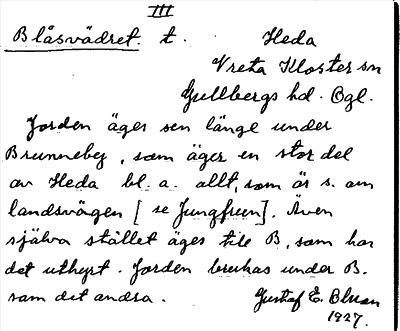 III
Blåsvädret. t. Heda
Vreta Kloster sn
Gullbergs hd. Ögl.
Jorden äges sen länge under
Brunneby, som äger en stor del
av Heda bl. a. allt, som är s. om
landsvägen [se Jungfrun]. Även
själva stället äges till B, som har
det uthyrt. Jorden brukas under B.
som det andra. Gustaf E. Bluan
1927.